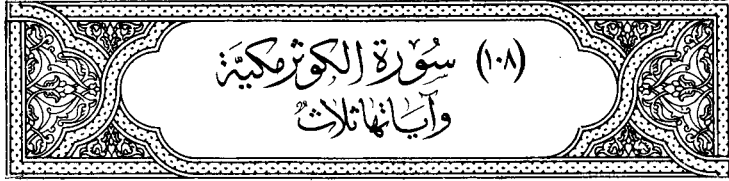 (١٠٨) سُورَة الكَوثر مكيَّة
وآيَاتها ثلاثٌ